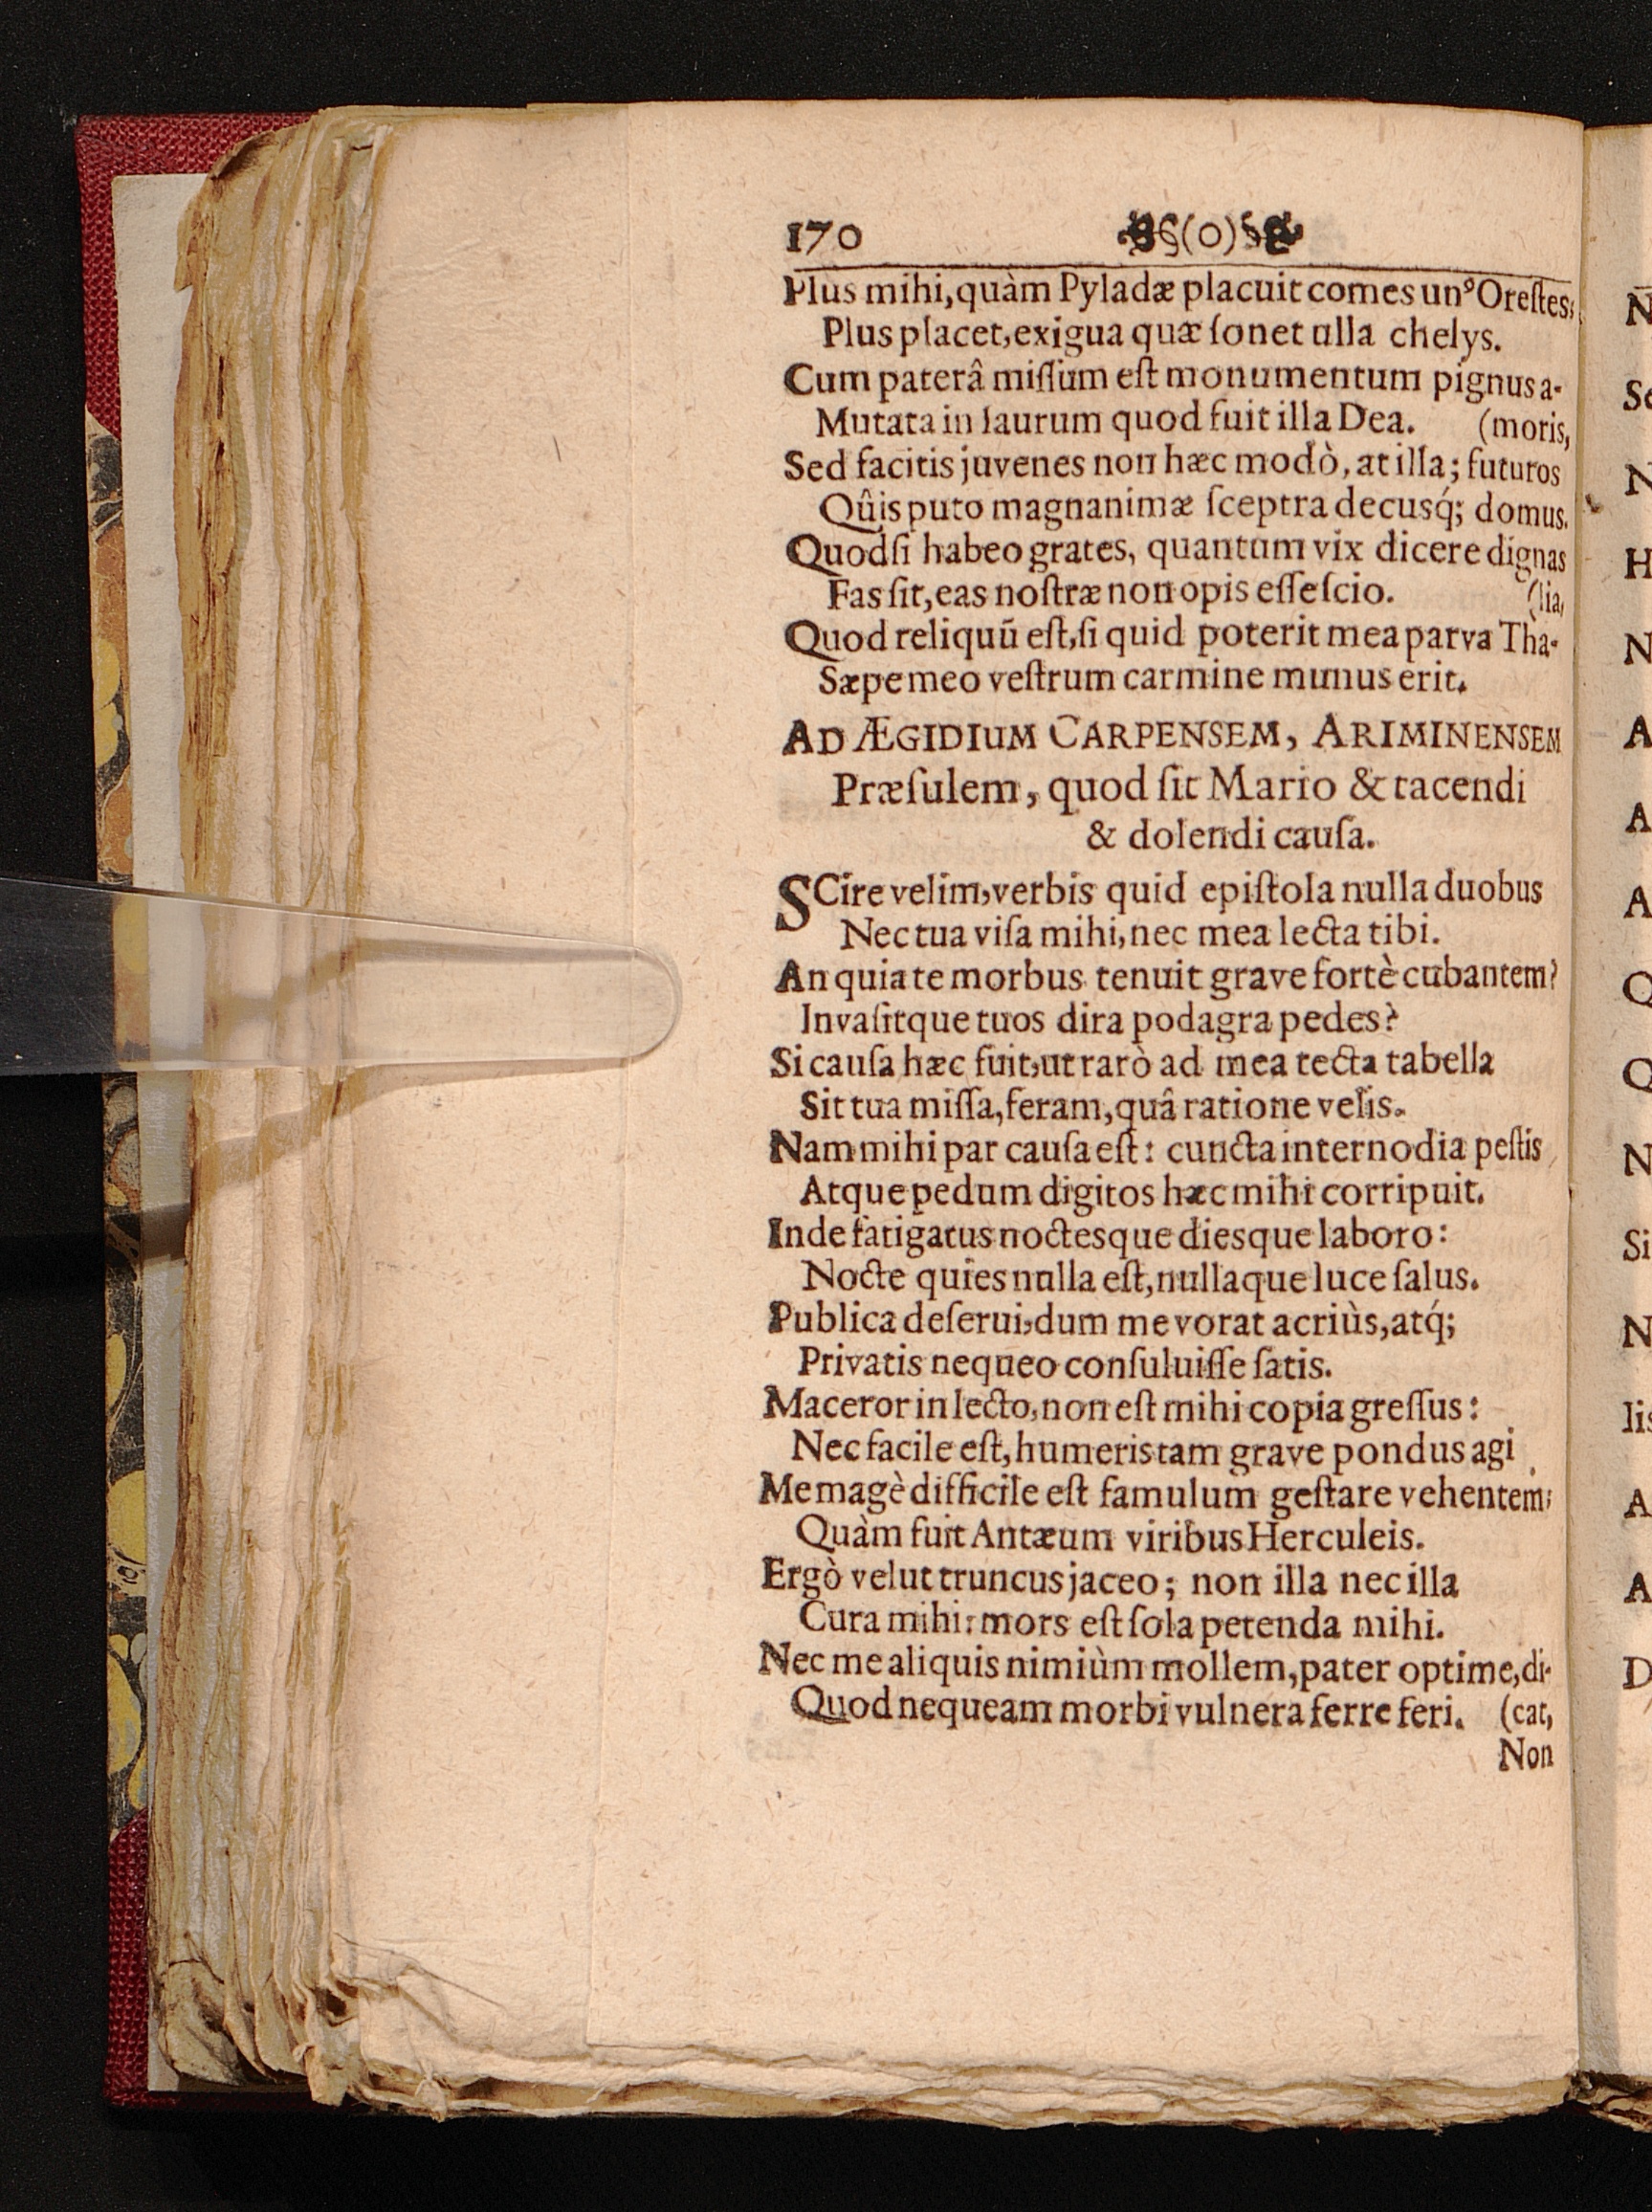 170 (o)
Plus mihi, quàm Pyladæ placuit comes unꝰ Orestes;
Plus placet, exigua quæ ſonet ulla chelys.
Cum paterâ miſſum eſt monumentum pignus a-
Mutata in laurum quod fuit illa Dea. (moris,
Sed facitis juvenes non hæc modò, at illa; futuros
Qûis puto magnanimæ ſceptra decusq́; domus.
Quodſi habeo grates, quantum vix dicere dignas
Fas ſit, eas noſtræ non opis eſſe ſcio. (lia,
Quod reliquū eſt, ſi quid poterit mea parva Tha-
Sæpe meo veſtrum carmine munus erit.
AD ÆGIDIUM CARPENSEM, ARIMINENSEM
Præſulem, quod ſit Mario & tacendi
& dolendi cauſa.
SCire velim, verbis quid epiſtola nulla duobus
Nec tua viſa mihi, nec mea lecta tibi.
An quia te morbus tenuit grave fortè cubantem?
Invaſitque tuos dira podagra pedes?
Si cauſa hæc fuit, ut rarò ad mea tecta tabella
Sit tua miſſa, feram, quâ ratione velis.
Nam mihi par cauſa eſt: cuncta internodia peſtis
Atque pedum digitos hæc mihi corripuit.
Inde fatigatus noctesque diesque laboro:
Nocte quies nulla eſt, nullaque luce ſalus.
Publica deſerui, dum me vorat acriùs, atq́;
Privatis nequeo conſuluiſſe ſatis.
Maceror in lecto, non eſt mihi copia greſſus:
Nec facile eſt, humeris tam grave pondus agi
Me magè difficile eſt famulum geſtare vehentem;
Quàm fuit Antæum viribus Herculeis.
Ergò velut truncus jaceo; non illa nec illa
Cura mihi: mors eſt ſola petenda mihi.
Nec me aliquis nimiùm mollem, pater optime, di-
Quod nequeam morbi vulnera ferre feri. (cat,
Non